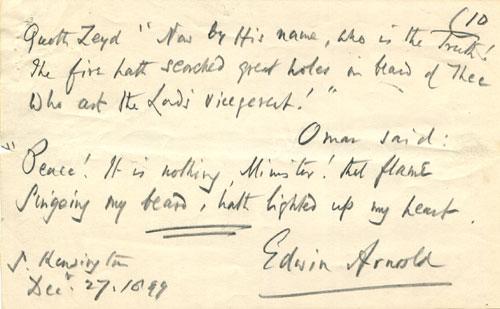 (10
Quoth Zeyd "Now by His name, who is the Truth!
The fire hath scorched great holes in beard of Thee
Who art the Lord's Vicegerent!"
Omar said:
"Peace! It is nothing Minister! that flame
Singeing my beard, hath lighted up my heart.
Edwin Arnold
S. Kensington
Dec. 27. 1899